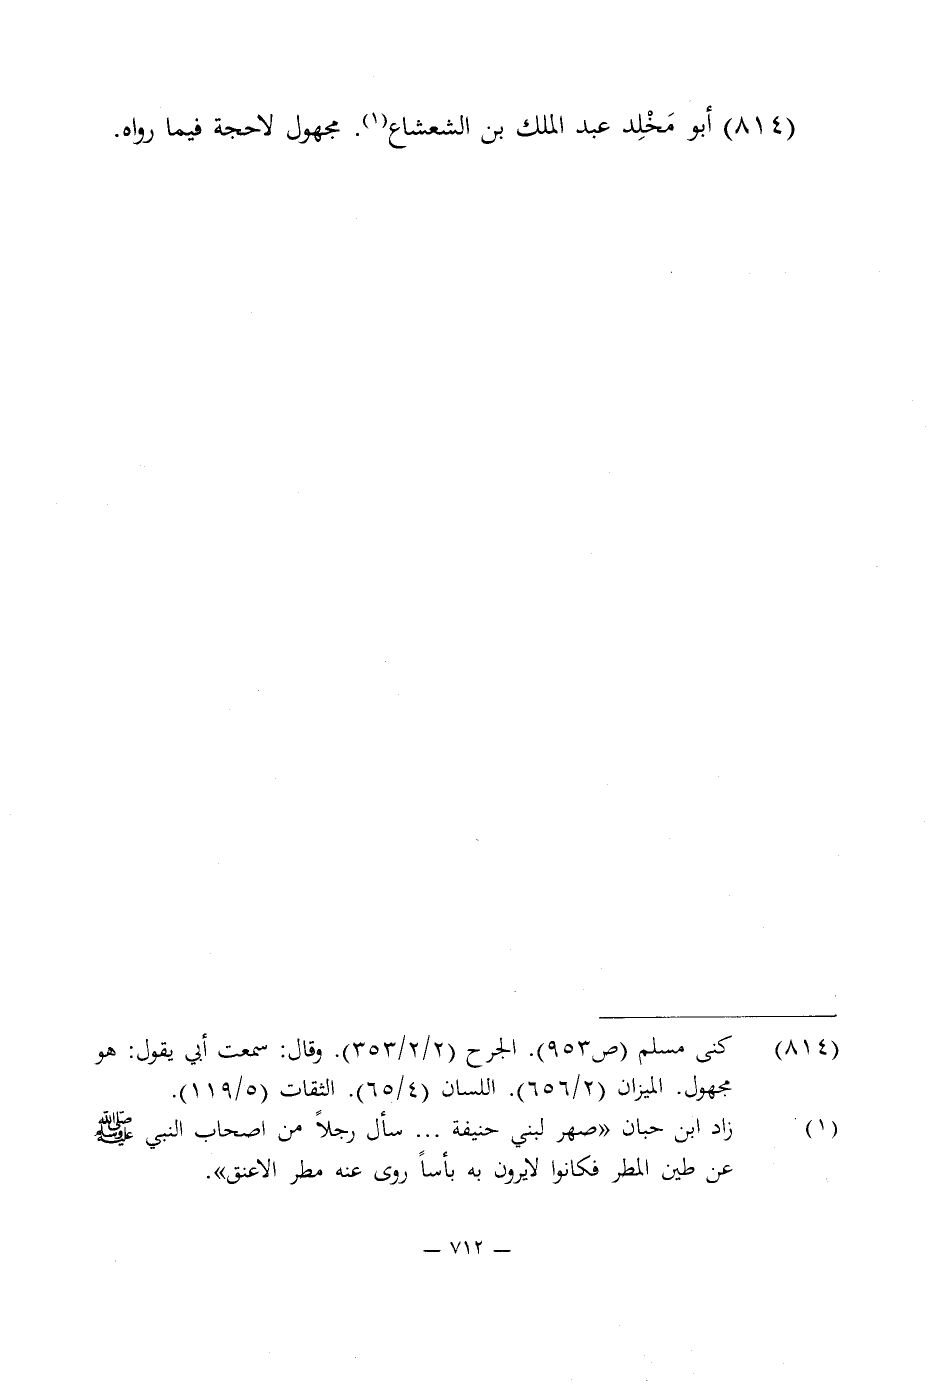 (٨١٤) أبو مَخْلِد عبد الملك بن الشعشاع(١). مجهول لاحجة فيما رواه.
(٨١٤) كنى مسلم (ص٩٥٣). الجرح (٣٥٣/٢/٢). وقال: سمعت أبي يقول: هو
مجهول. الميزان (٦٥٦/٢). اللسان (٦٥/٤). الثقات (١١٩/٥).
(١) زاد ابن حبان «صهر لبني حنيفة ... سأل رجلاً من اصحاب النبي ﷺ
عن طين المطر فكانوا لايرون به بأساً روى عنه مطر الاعنق».
— ٧١٢ —